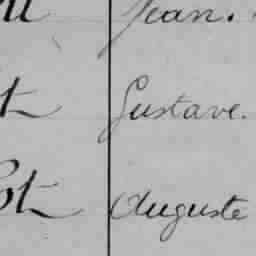 Jean.
Gustave.
Auguste